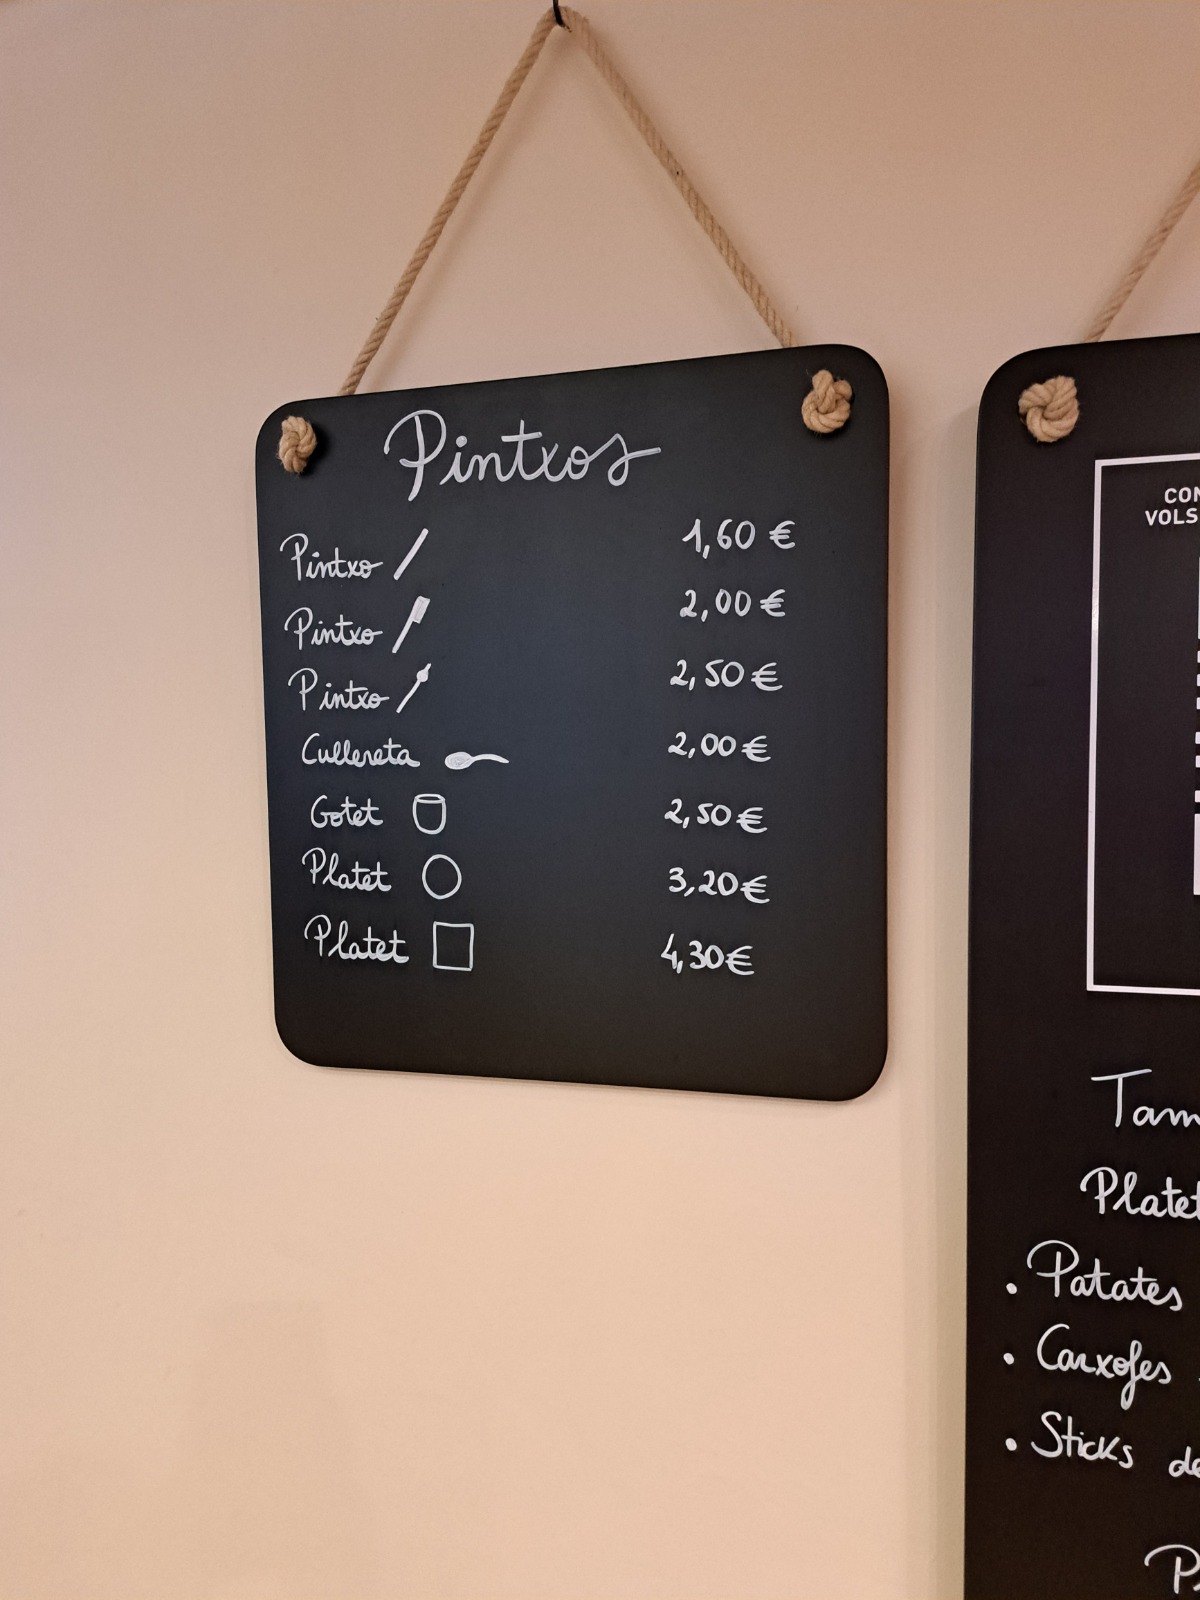 Pintxos
Pintxo 1,60 €
Pintxo 2,00 €
Pintxo 2,50 €
Cullereta 2,00 €
Gotet 2,50 €
Platet 3,20 €
Platet 4,30 €
VOLS
Platet
• Patates
• Carxofes
• Sticks de